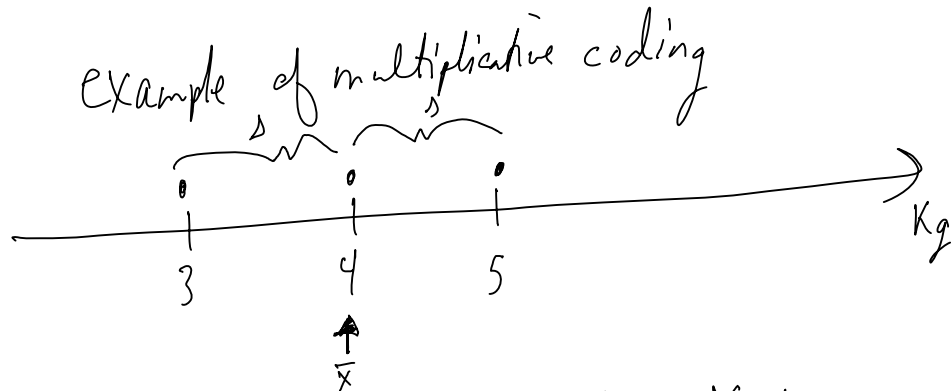 example of multiplicative coding
s s
Kg
3 4 5
x̄